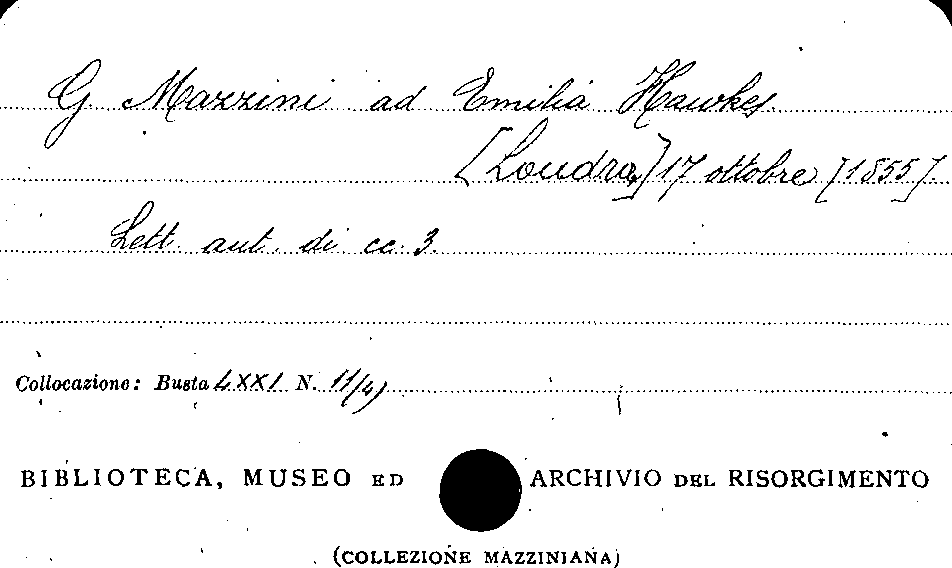 G. Mazzini ad Emilia Hawkes.
[Londra,] 17 ottobre [1855].
Lett. aut. di cc. 3.
Collocazione: Busta LXXI N. 11/4)
BIBLIOTECA, MUSEO ED ARCHIVIO DEL RISORGIMENTO
(COLLEZIONE MAZZINIANA)